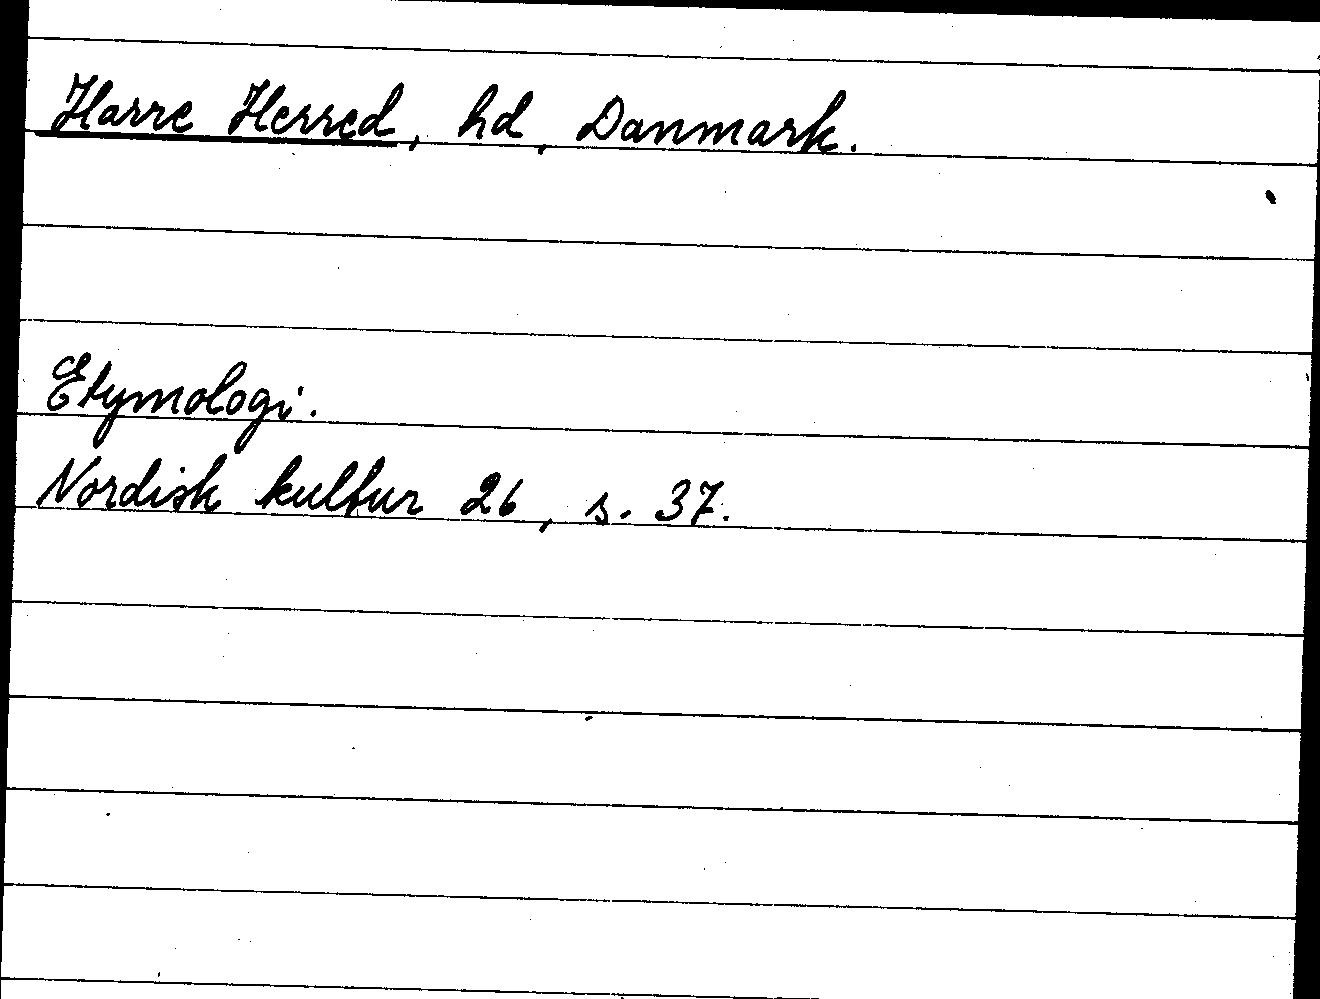 Harre Herred, hd, Danmark.
Etymologi.
Nordisk kultur 26, s. 37.